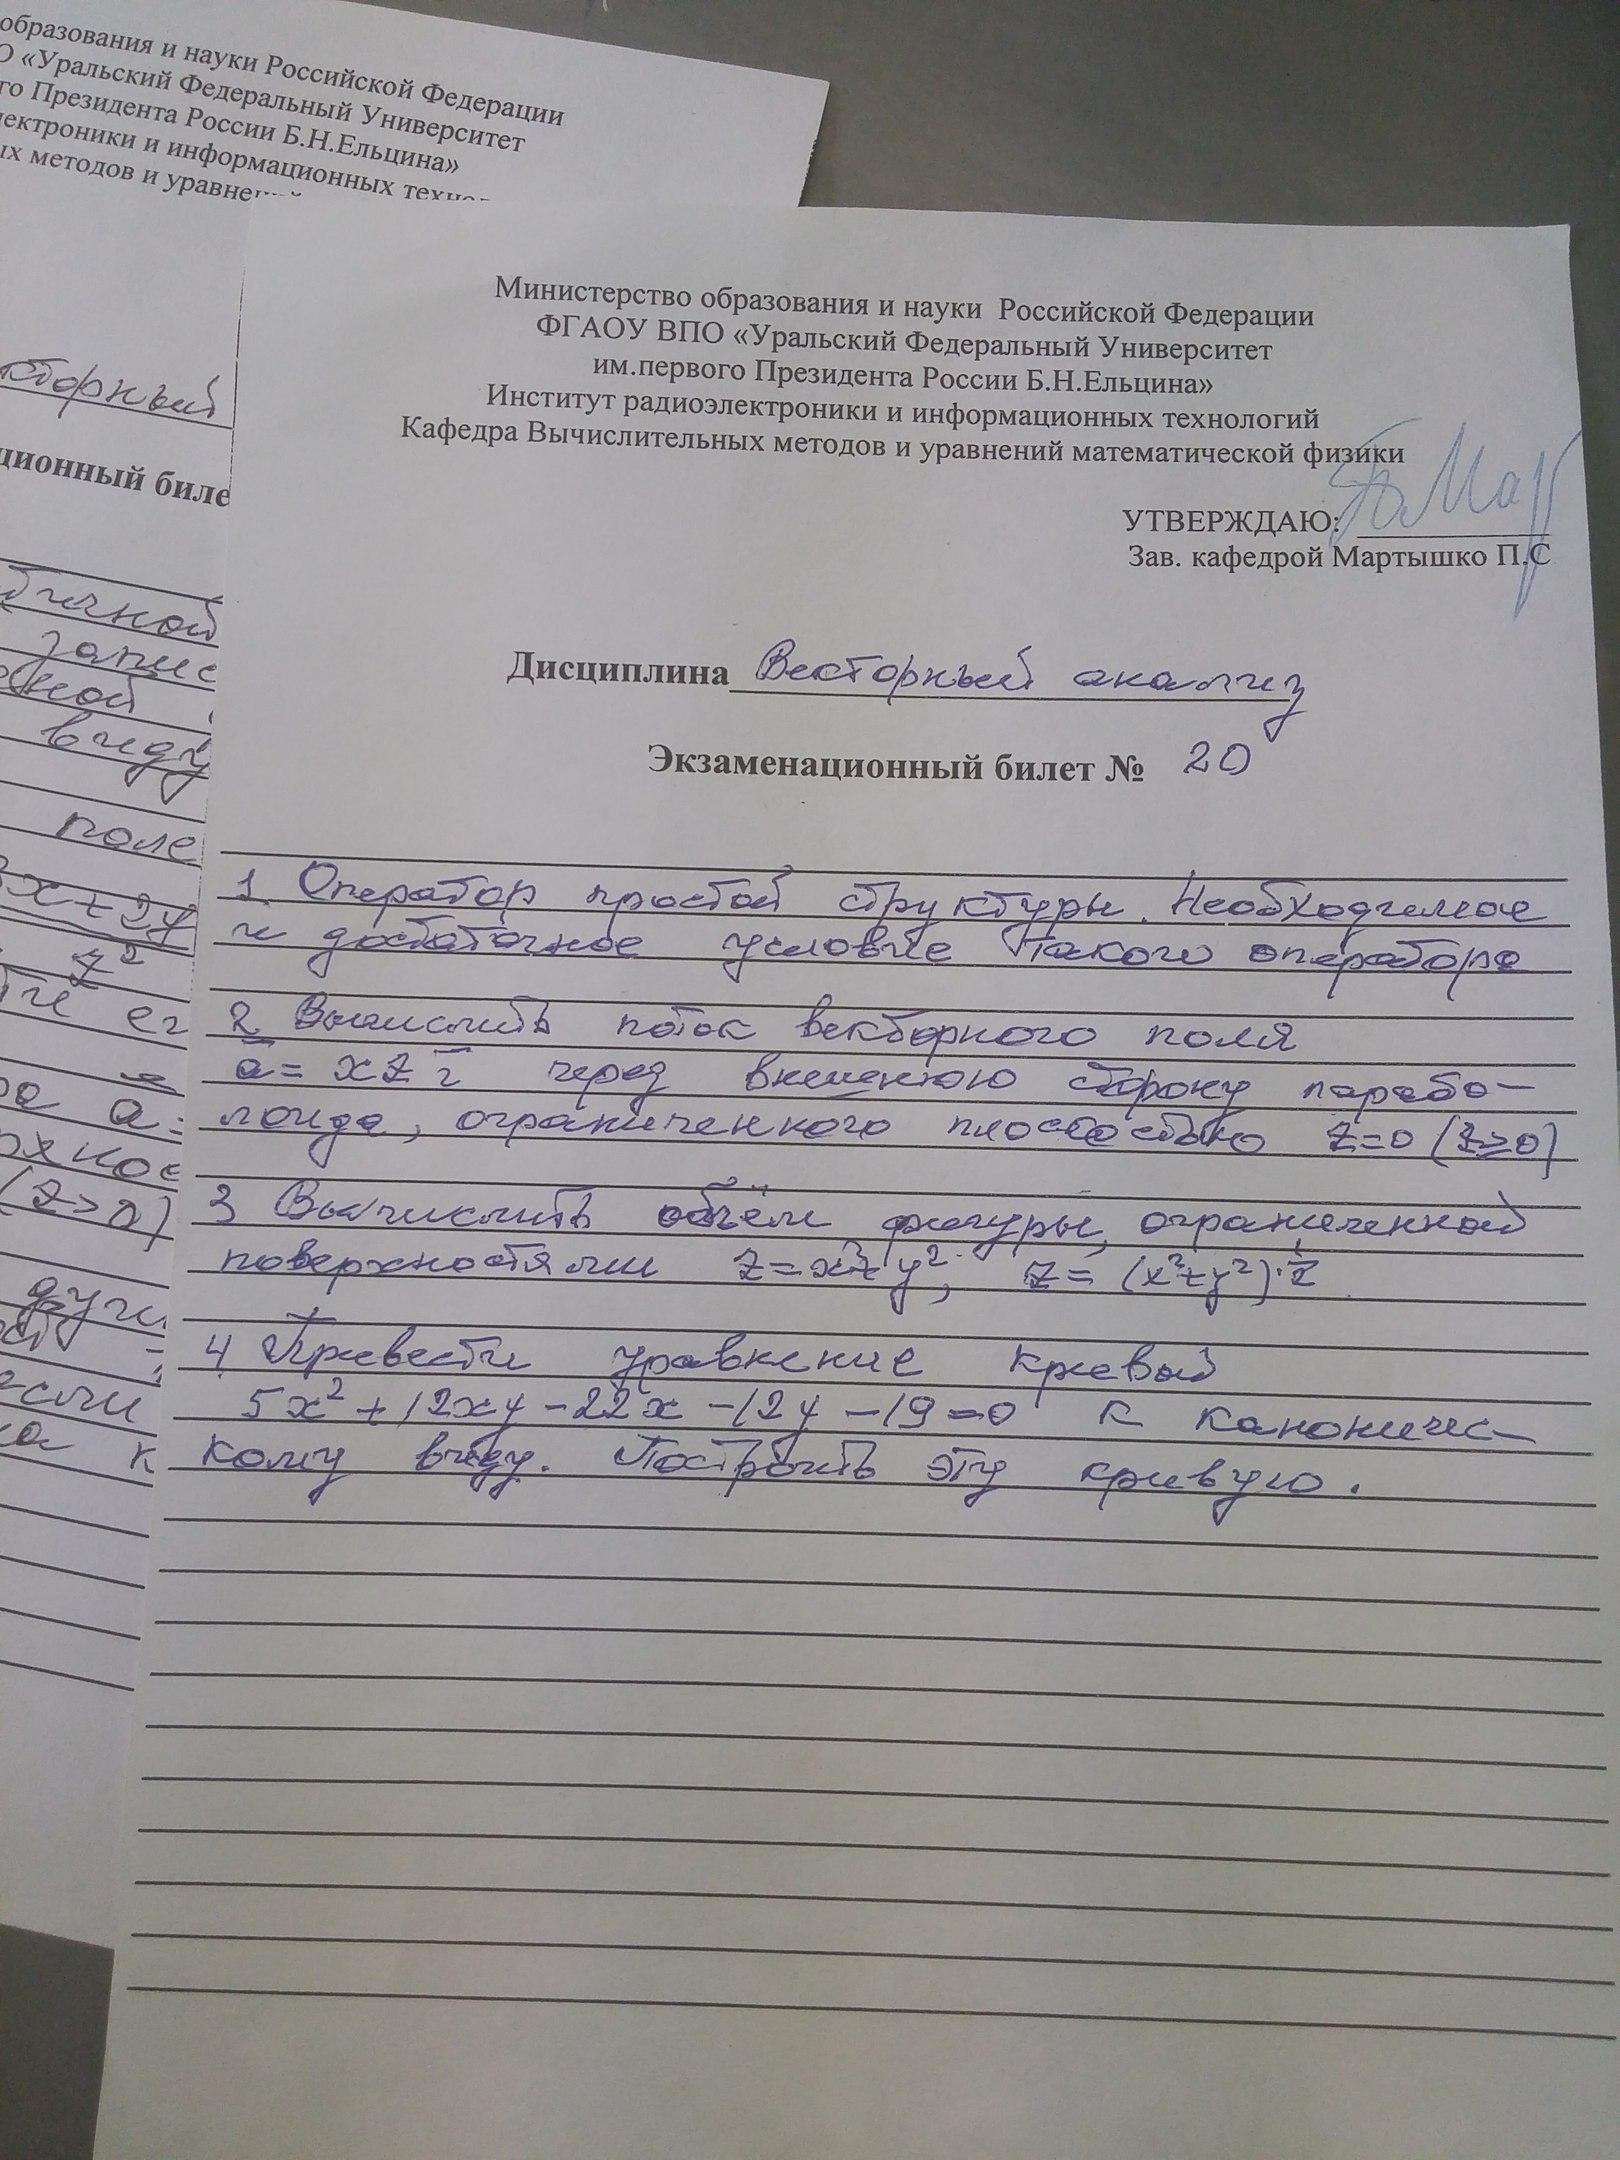 образования и науки Российской Федерации
О «Уральский Федеральный Университет
го Президента России Б.Н.Ельцина»
лектроники и информационных технол
ых методов и уравнений
кторный
ционный биле
бичной
запис
ной
виду
поле
3x+2y
z²
ти ег
ра ā=
рхнос
(z>0)
к
Министерство образования и науки Российской Федерации
ФГАОУ ВПО «Уральский Федеральный Университет
им.первого Президента России Б.Н.Ельцина»
Институт радиоэлектроники и информационных технологий
Кафедра Вычислительных методов и уравнений математической физики
УТВЕРЖДАЮ:
Зав. кафедрой Мартышко П.С
Дисциплина Векторный анализ
Экзаменационный билет № 20
1. Оператор простой структуры. Необходимое
и достаточное условие такого оператора
2 Вычислить поток векторного поля
ā = xz ī через внешнюю сторону парабо-
лоида, ограниченного плоскостью z=0 (z≥0)
3 Вычислить объём фигуры, ограниченной
поверхностями z=x²+y², z=(x²+y²)·½
4 Привести уравнение кривой
5x²+12xy-22x-12y-19=0 к каноничес-
кому виду. Построить эту кривую.